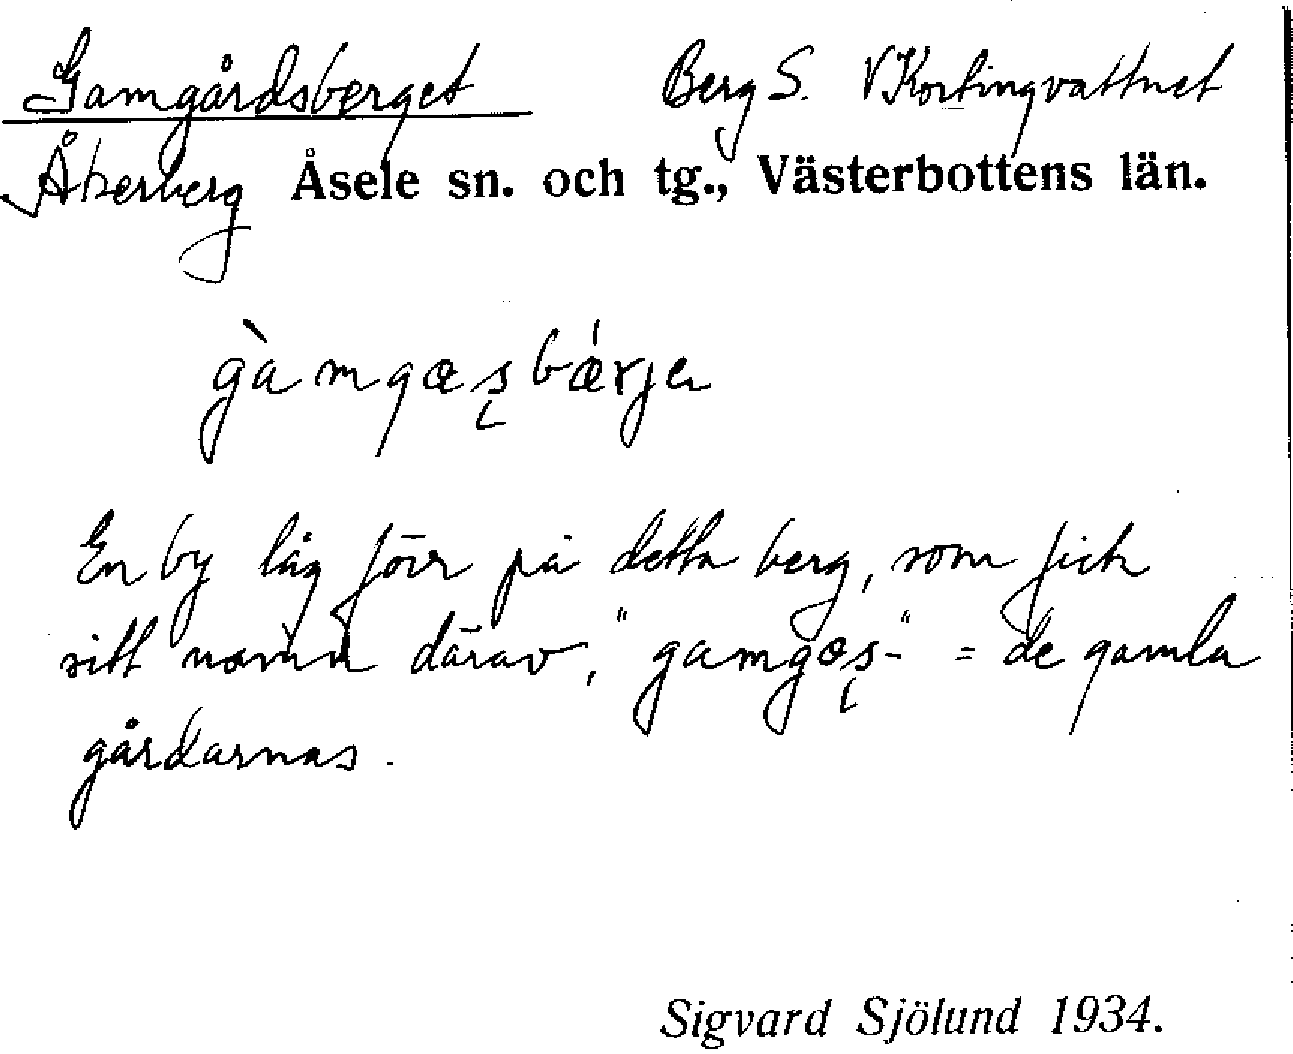 Gamgårdsberget Berg S. V Kortingvattnet
Åkerberg Åsele sn. och tg., Västerbottens län.
gàmgœʂbǽrje
En by låg förr på detta berg, som fick
sitt namn därav, "gamgœʂ-" = de gamla
gårdarnas.
Sigvard Sjölund 1934.